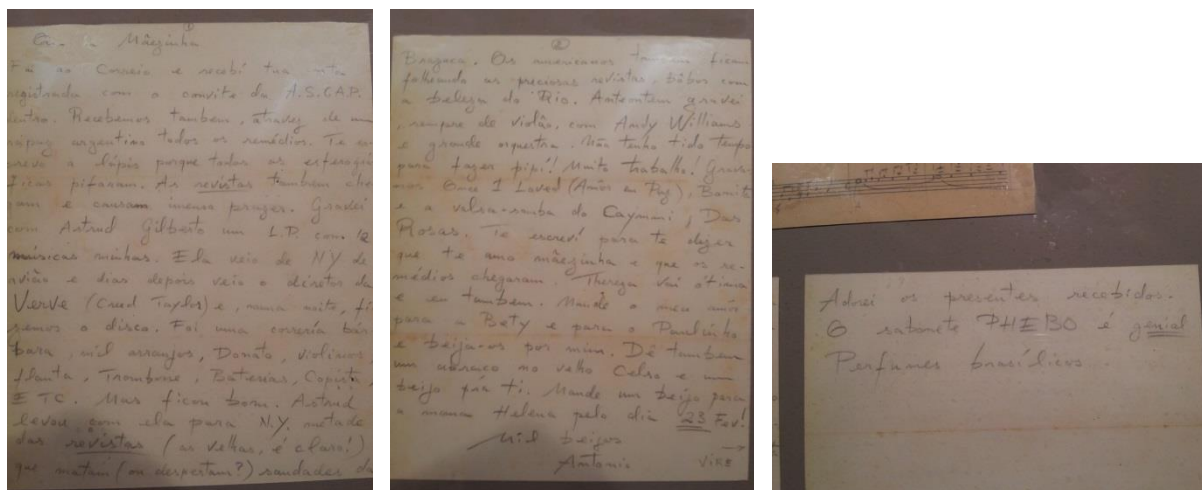 Mãezinha
Fui ao Correio e recebi tua carta
registrada com o convite da A.S.CAP.
dentro. Recebemos tambem, atravez de um
argentino todos os remédios. Te es-
crevo a lápis porque todas as esferográ
ficas pifaram. As revistas tambem che
gam e causam imenso prazer. Gravei
com Astrud Gilberto um L.P. com 12
músicas minhas. Ela veio de NY de
avião e dias depois veio o diretor da
Verve (Creed Taylor) e, numa noite, fi
zemos o disco. Foi uma correria bár
bara, mil arranjos, Donato, violinos,
flauta, Trombone, Baterias, Copista,
ETC. Mas ficou bom. Astrud
levou com ela para N.Y. metade
das revistas (as velhas, é claro!)
que matam (ou despertam?) saudades da
②
Os americanos tambem ficam
folheando as preciosas revistas, bôbos com
a beleza do Rio. Anteontem gravei
, sempre de violão, com Andy Williams
e grande orquestra. Não tenho tido tempo
para fazer pipi! Muito trabalho! Grava-
mos Once I Loved (Amôr em Paz), Bonita
e a valsa-samba do Caymmi; Das
Rosas. Te escreví para te dizer
que te amo mãezinha e que os re-
médios chegaram. Thereza vai ótima
e eu tambem. Mande o meu amôr
para a Bety e para o Paulinho
e beija-os por mim. Dê tambem
um abraço no velho Celso e um
beijo pra ti. Mande um beijo para
a minha Helena pelo dia 23 Fev!
Mil beijos
Antonio VIRE →
Adorei os presentes recebidos.
O sabonete PHEBO é genial
Perfumes brasílicos.